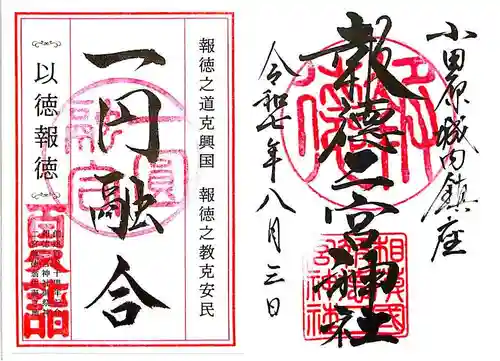 小田原城内鎮座
報徳二宮神社
令和七年八月三日
相模国
報徳二宮神社
報徳之道克興国 報徳之教克安民
一円融合
以徳報徳
夏詣